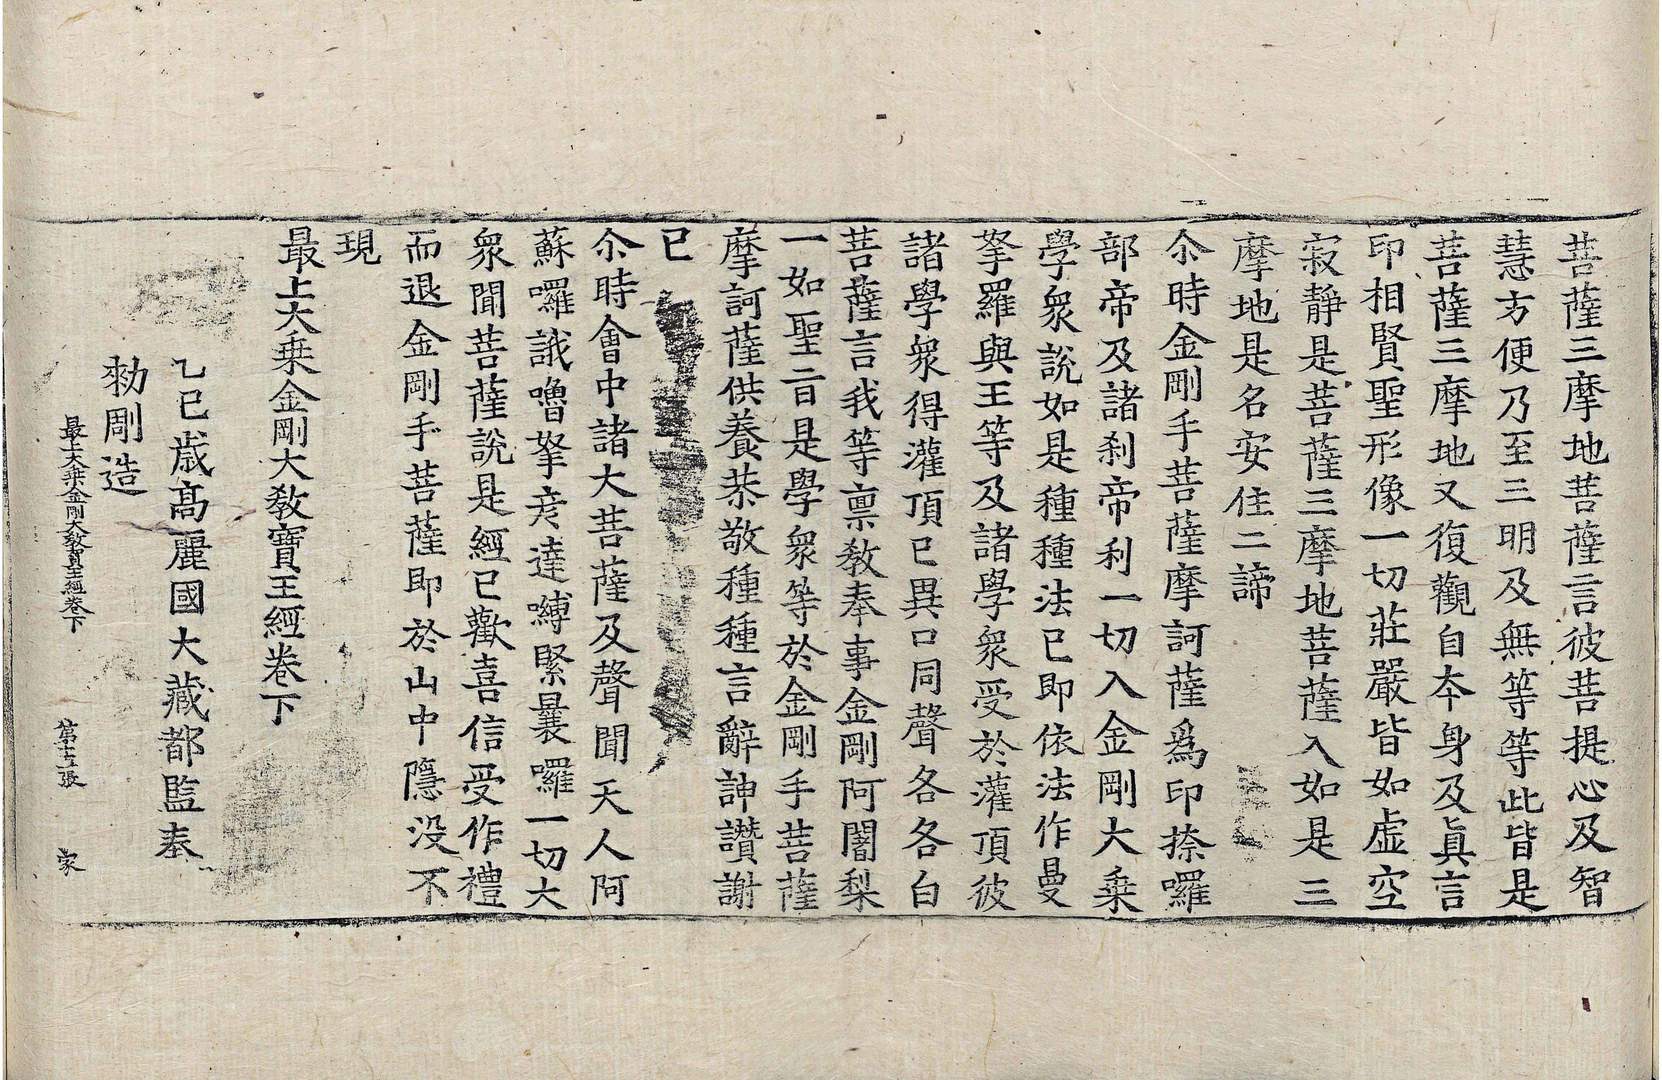 菩薩三摩地菩薩言彼菩提心及智
慧方便乃至三明及無等等此皆是
菩薩三摩地又復觀自夲身及眞言
印相賢聖形像一切莊嚴皆如虛空
寂靜是菩薩三摩地菩薩入如是三
摩地是名安住二諦
尒時金剛手菩薩摩訶薩爲印捺囉
部帝及諸刹帝利一切入金剛大乗
學衆說如是種種法已即依法作曼
拏羅與王等及諸學衆受於灌頂彼
諸學衆得灌頂已異口同聲各各白
菩薩言我等禀教奉事金剛阿闍梨
一如聖言是學衆等於金剛手菩薩
摩訶薩供養恭敬種種言辭訷讚謝
已
尒時會中諸大菩薩及聲聞天人阿
蘇囉誐嚕拏彦達嚩緊曩囉一切大
衆聞菩薩說是經已歡喜信受作禮
而退金剛手菩薩即於山中隱没不
現
最上大乗金剛大教寶王經卷下
乙巳歲高麗國大藏都監奉
勑彫造
最上大乗金剛大教寶王經卷下 第十五張 家